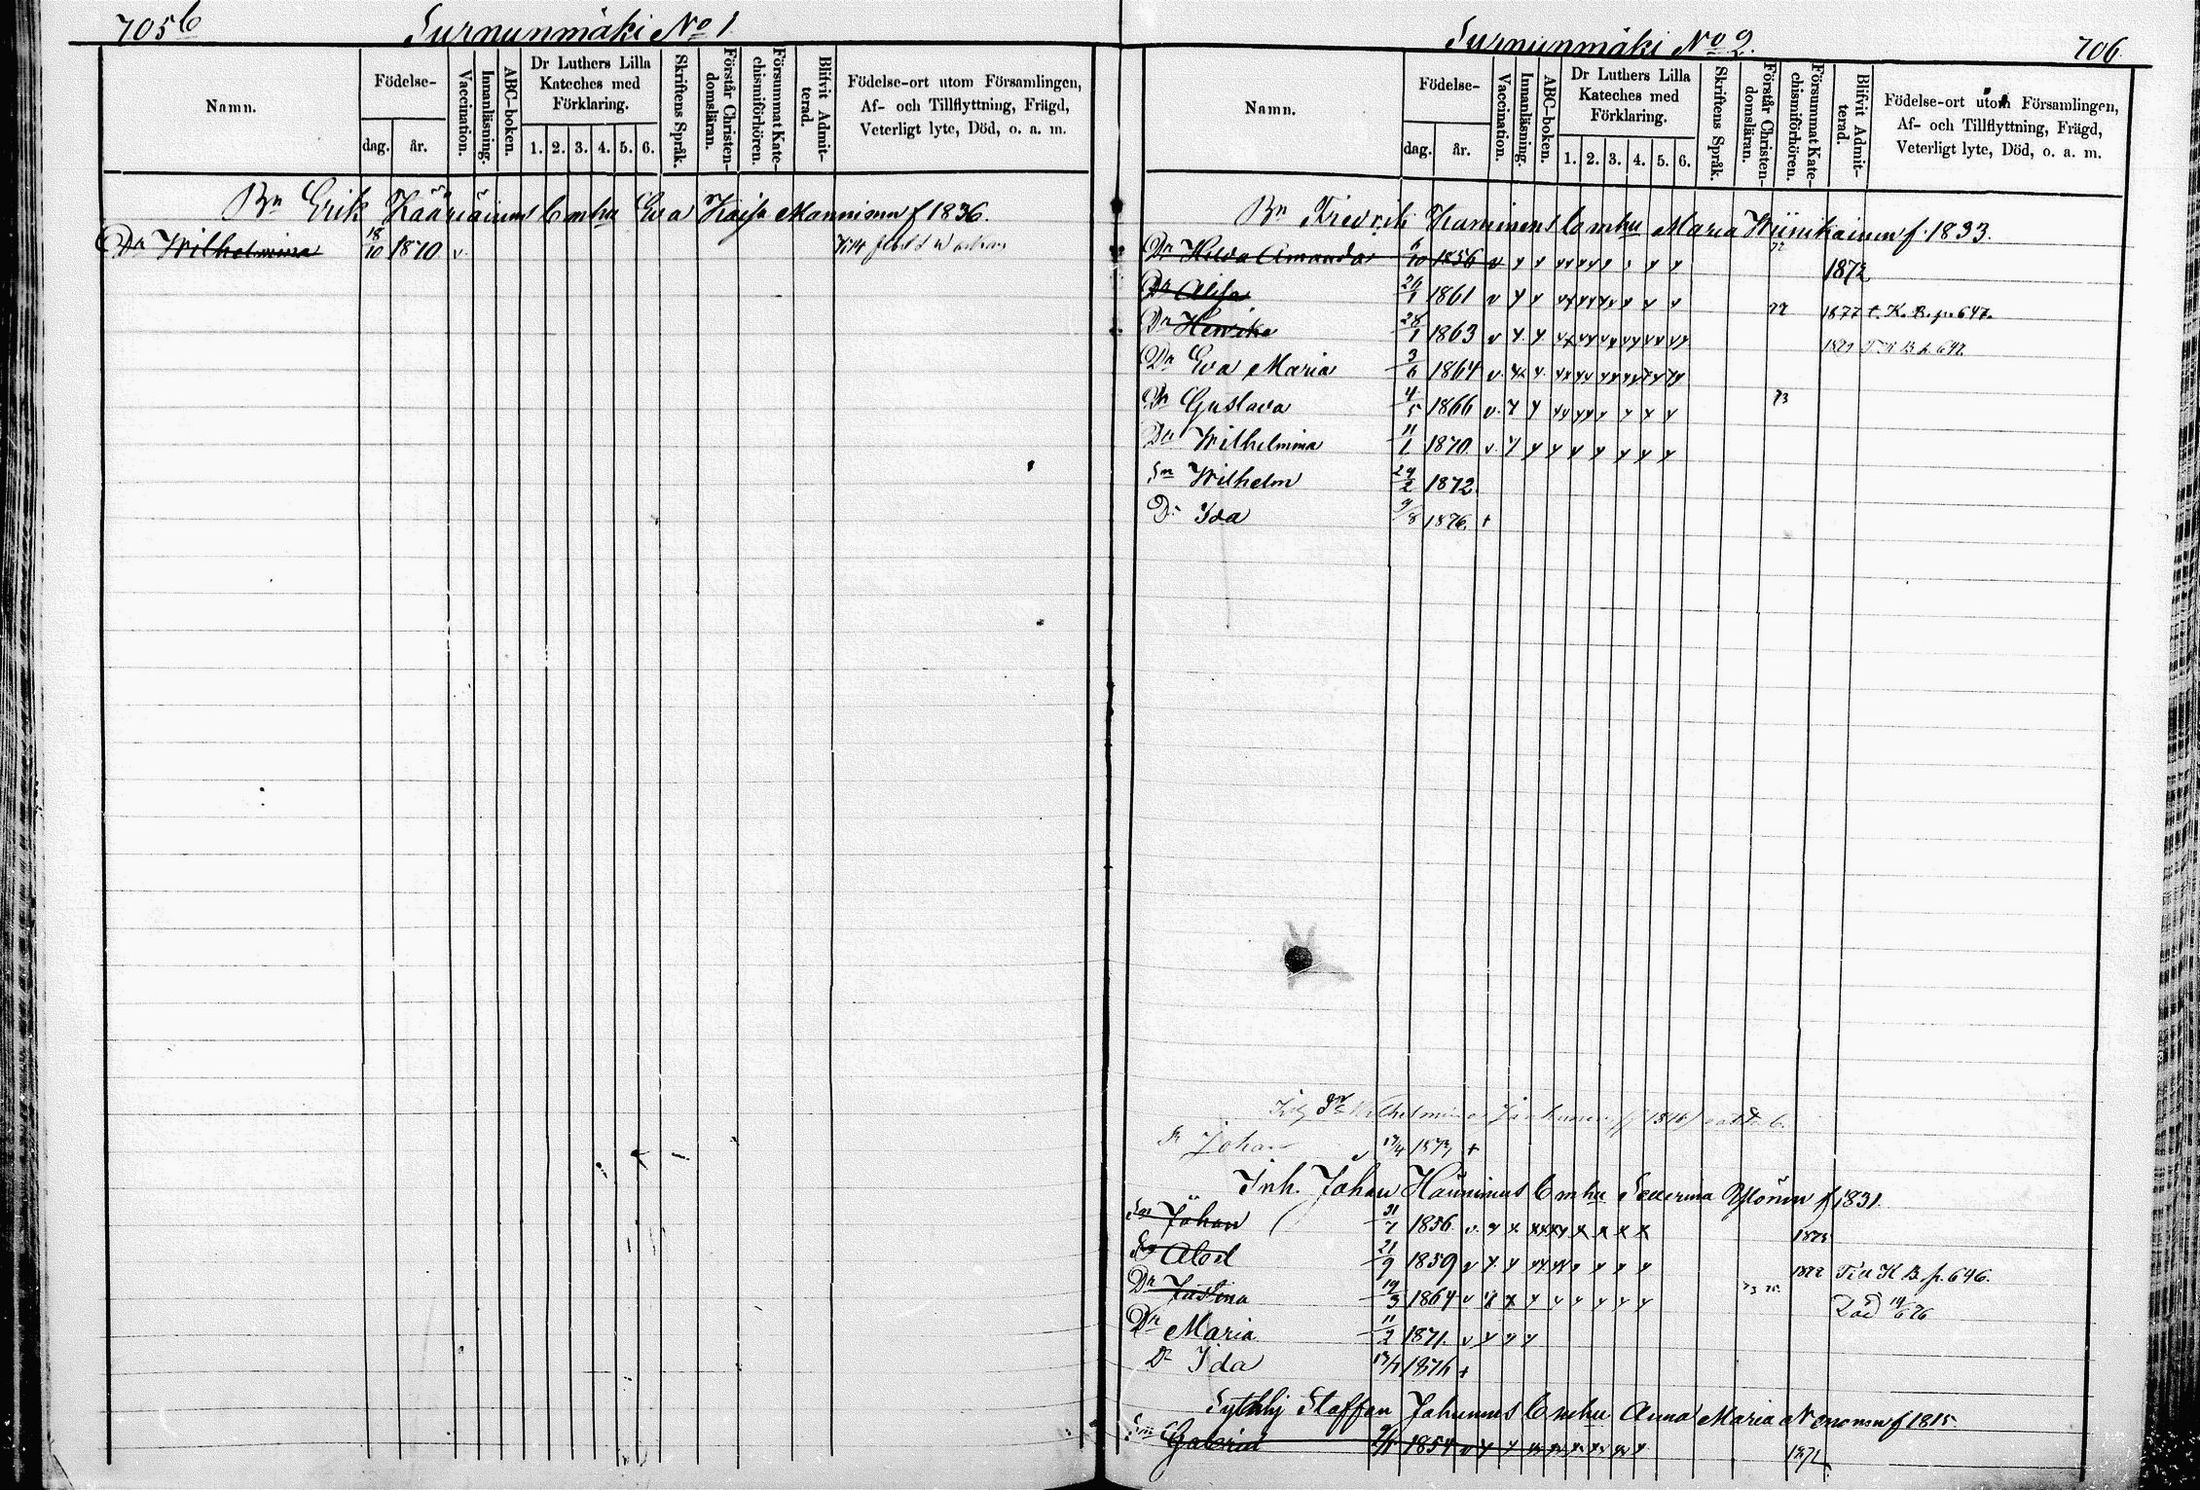 705 b
Surnunmäki No 1
Namn.
Födelse-
dag.
år.
Vaccination.
Innanläsning.
ABC-boken.
Dr Luthers Lilla
Kateches med
Förklaring.
1. 2. 3. 4. 5. 6.
Skriftens Språk.
Förstår Christen-
domsläran.
Försummat Kate-
chismiförhören.
Blifvit Admit-
terad.
Födelse-ort utom Församlingen,
Af- och Tillflyttning, Frägd,
Veterligt lyte, Död, o. a. m.
Bn Erik Kääriäinens o mhu Eva Kaisa Manninen f 1836.
Dr Wilhelmina 18/10 1870 v.
Surnunmäki No 2.
706
Namn.
Födelse-
dag.
år.
Vaccination.
Innanläsning.
ABC-boken.
Dr Luthers Lilla
Kateches med
Förklaring.
1. 2. 3. 4. 5. 6.
Skriftens Språk.
Förstår Christen-
domsläran.
Försummat Kate-
chismiförhören.
Blifvit Admit-
terad.
Födelse-ort utom Församlingen,
Af- och Tillflyttning, Frägd,
Veterligt lyte, Död, o. a. m.
Bn Fredrik Kaninens o mhu Maria Wiinikainen f. 1833.
Dr Hilda Amanda 6/10 1856 72 1872
Dr Alisa 26/1 1861 77 1877 t. K. B. p. 647.
Dr Henrika 28/1 1863 K B p. 647
Dr Eva Maria 3/6 1864
Dr Gustava 4/5 1866 73
Dr Wilhelmina 11/1 1870
Sn Wilhelm 29/2 1872
Dr Ida 9/8 1876 +
Wilhelmina
Sn Johan 17/4 1873 +
Inh. Johan Hänninens o mhu Severina Ylönen f 1831.
Son Johan 31/7 1856 1873
Son Abel 21/9 1859 Till K B. p. 646.
Dr Justina 19/3 1864 73 75 Död 19/6 76
Dr Maria 11/2 1871
Dr Ida 1874 +
Sythlj Staffan o mhu Anna Maria f 1815
Son Gabriel 1854 1872